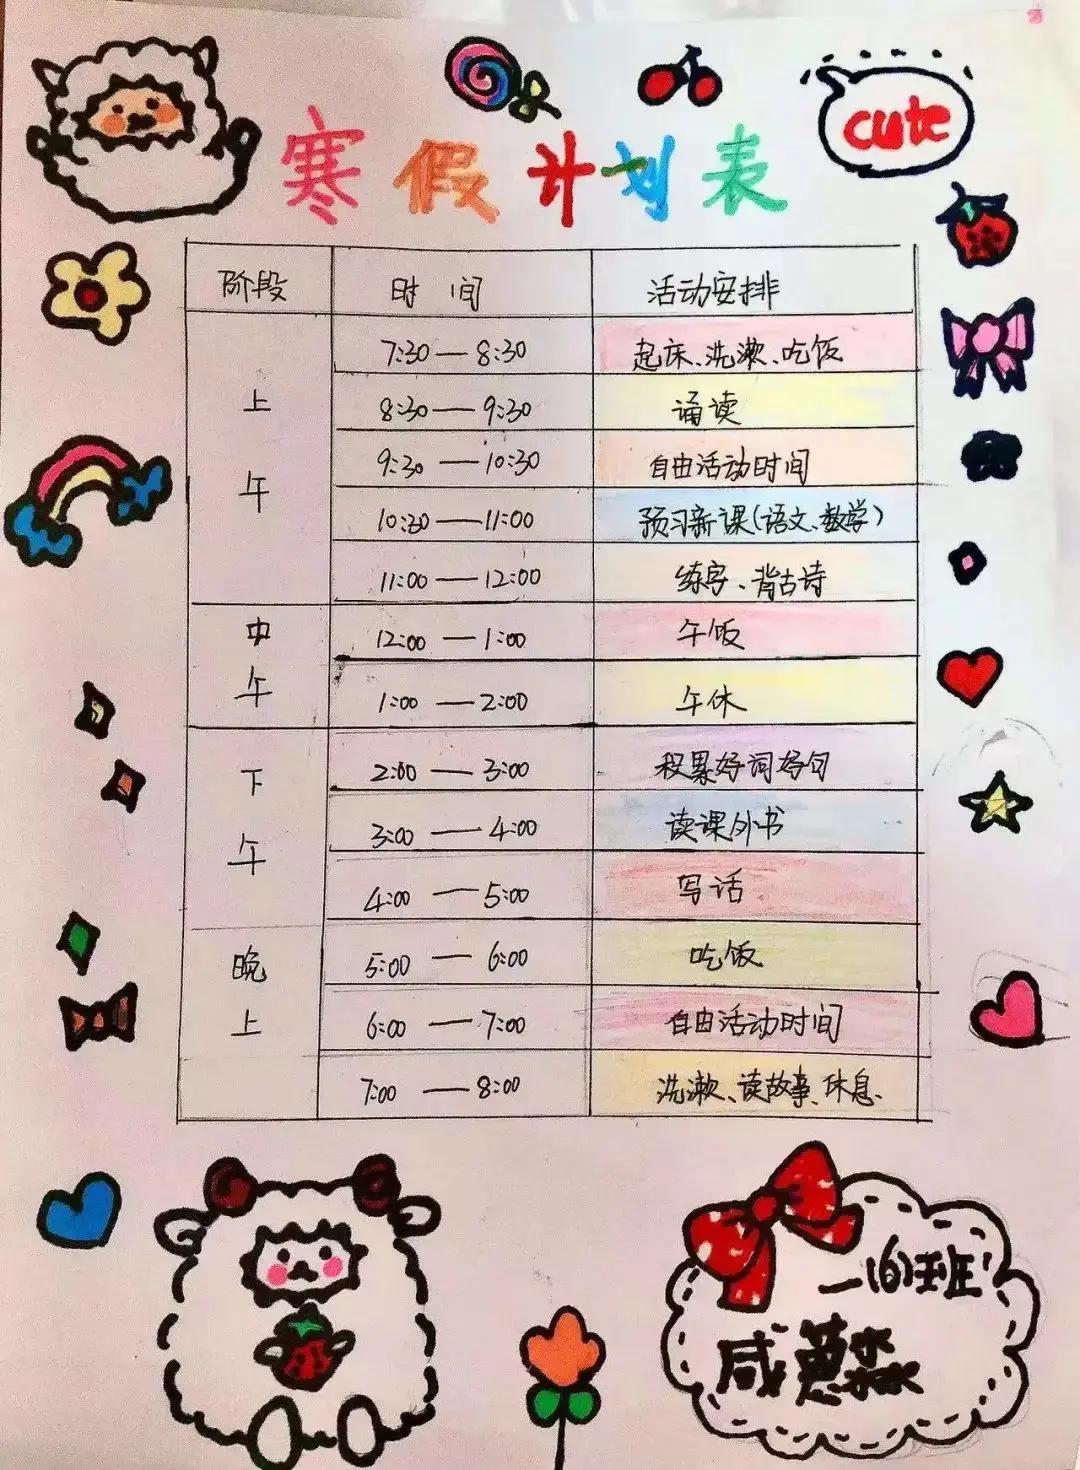 cute
寒假计划表
阶段 时间 活动安排
上午
7:30—8:30 起床、洗漱、吃饭
8:30—9:30 诵读
9:30—10:30 自由活动时间
10:30—11:00 预习新课(语文、数学)
11:00—12:00 练字、背古诗
中午
12:00—1:00 午饭
1:00—2:00 午休
下午
2:00—3:00 积累好词好句
3:00—4:00 读课外书
4:00—5:00 写话
晚上
5:00—6:00 吃饭
6:00—7:00 自由活动时间
7:00—8:00 洗漱、读故事、休息.
一(6)班
咸蕙淼